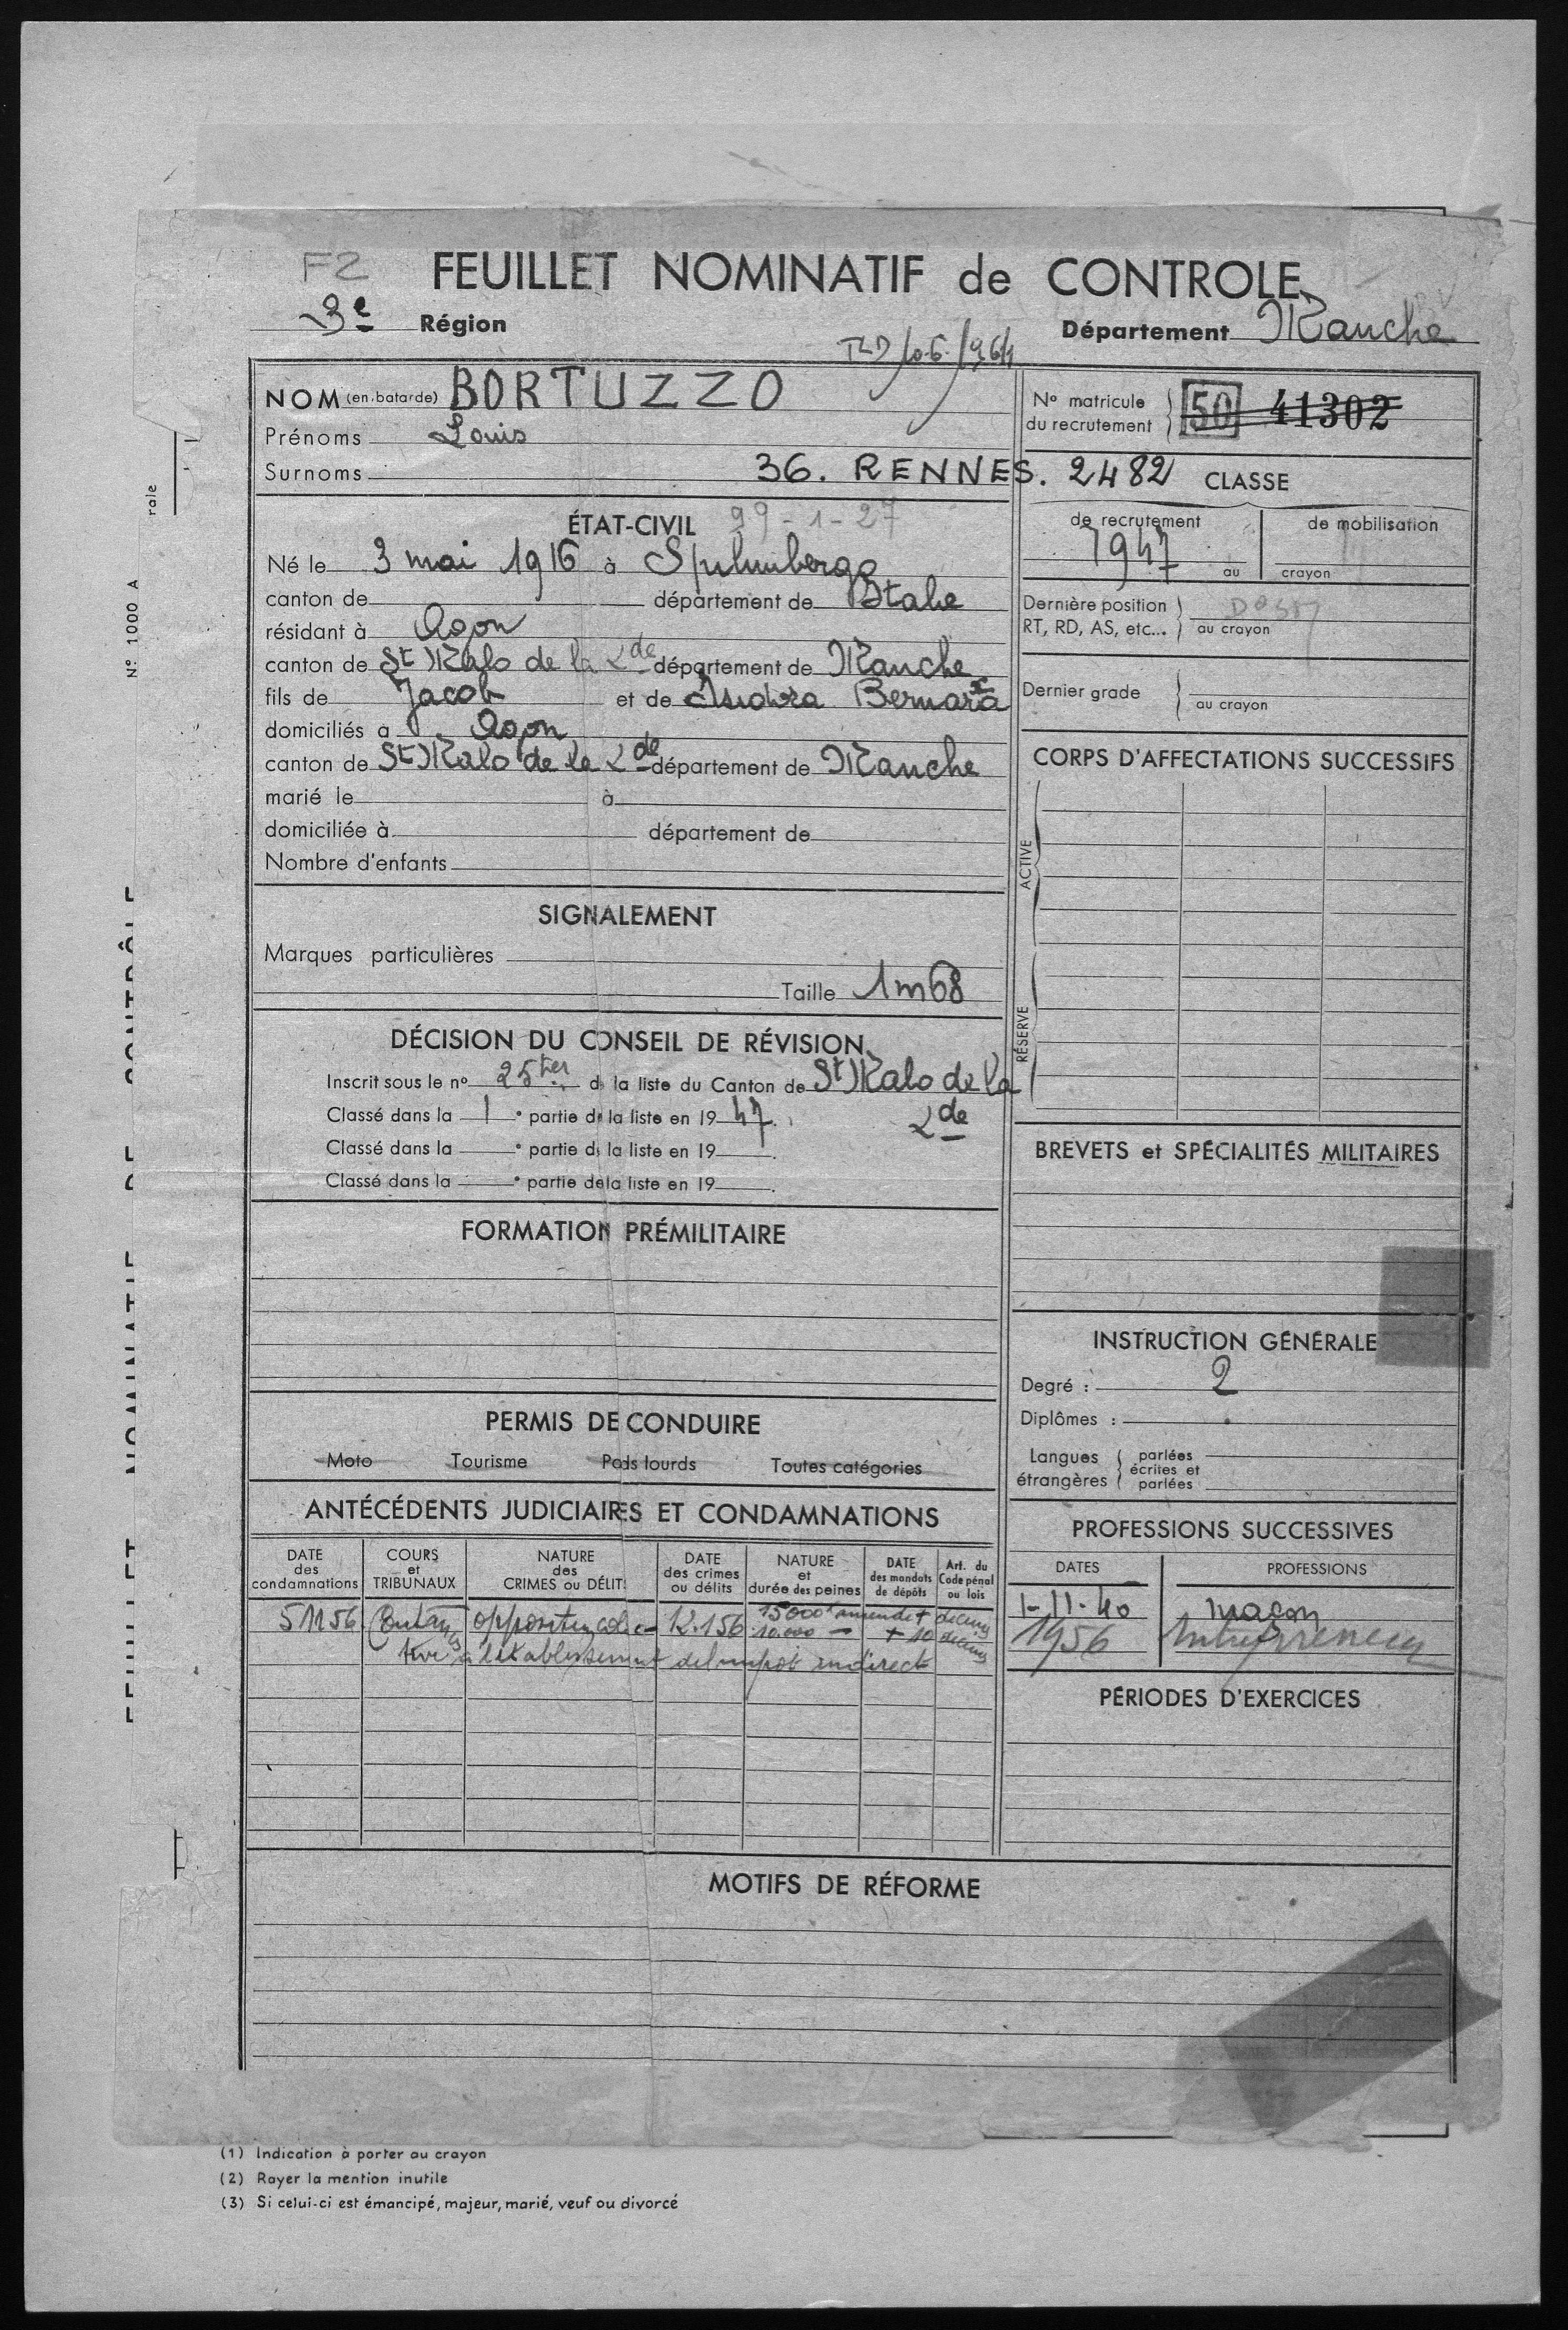 F2
FEUILLET NOMINATIF de CONTROLE
3e Région
Département Manche
NOM (en batarde) BORTUZZO
Prénoms Louis
Surnoms
36. RENNES. 2482
N° matricule du recrutement 50 41302
CLASSE
de recrutement
de mobilisation
1947
au crayon
ÉTAT-CIVIL 99-1-27
Né le 3 mai 1916 à
canton de département de Italie
résidant à Agon
canton de St Malo de la Lde département de Manche
fils de Jacob et de Bernara
domiciliés a Agon
canton de St Malo de la Lde département de Manche
marié le à
domiciliée à département de
Nombre d'enfants
Dernière position
RT, RD, AS, etc... au crayon
Dernier grade
au crayon
CORPS D'AFFECTATIONS SUCCESSIFS
ACTIVE
RÉSERVE
SIGNALEMENT
Marques particulières
Taille 1m68
DÉCISION DU CONSEIL DE RÉVISION
Inscrit sous le n° 25ter de la liste du Canton de St Malo de la Lde
Classé dans la 1 e partie de la liste en 1947.
Classé dans la e partie de la liste en 19 .
Classé dans la e partie de la liste en 19 .
BREVETS et SPÉCIALITÉS MILITAIRES
FORMATION PRÉMILITAIRE
INSTRUCTION GÉNÉRALE
Degré : 2
Diplômes :
Langues étrangères
parlées
écrites et parlées
PERMIS DE CONDUIRE
Moto Tourisme Poids lourds Toutes catégories
ANTÉCÉDENTS JUDICIAIRES ET CONDAMNATIONS
DATE des condamnations
COURS et TRIBUNAUX
NATURE des CRIMES ou DÉLITS
DATE des crimes ou délits
NATURE et durée des peines
DATE des mandats de dépôts
Art. du Code pénal ou lois
5 11 56 opposition 12.1 56 15000 amende +
10.000 + 10
à l'établissement de l'impot indirect
PROFESSIONS SUCCESSIVES
DATES
PROFESSIONS
1-11-40 maçon
1956
PÉRIODES D'EXERCICES
MOTIFS DE RÉFORME
(1) Indication à porter au crayon
(2) Rayer la mention inutile
(3) Si celui-ci est émancipé, majeur, marié, veuf ou divorcé
N° 1000 A
rale